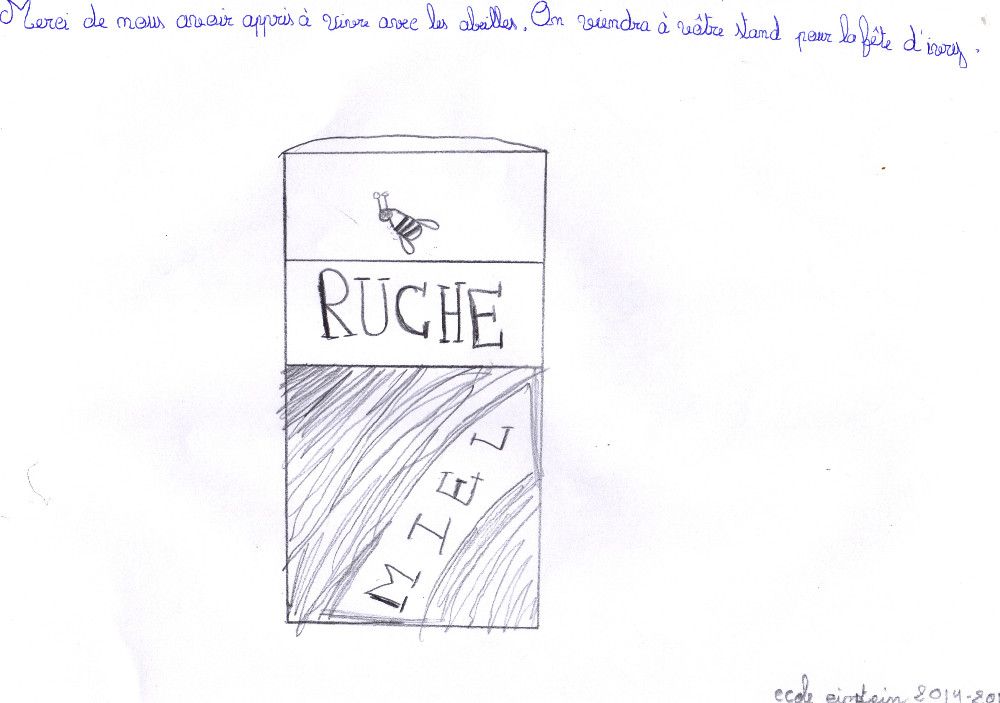 Merci de nous avoir appris à vivre avec les abeilles. On viendra à vôtre stand pour la fête d'ivry.
RUCHE
MIEL
ecole einstein 2014-201